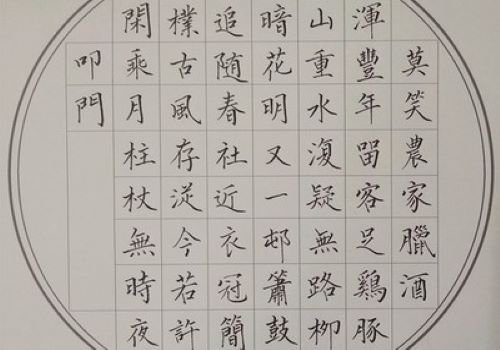 莫笑農家臘酒
渾豐年留客足鷄豚
山重水復疑無路柳
暗花明又一邨簫鼓
追随春社近衣冠簡
樸古風存従今若許
閑乘月柱杖無時夜
叩門